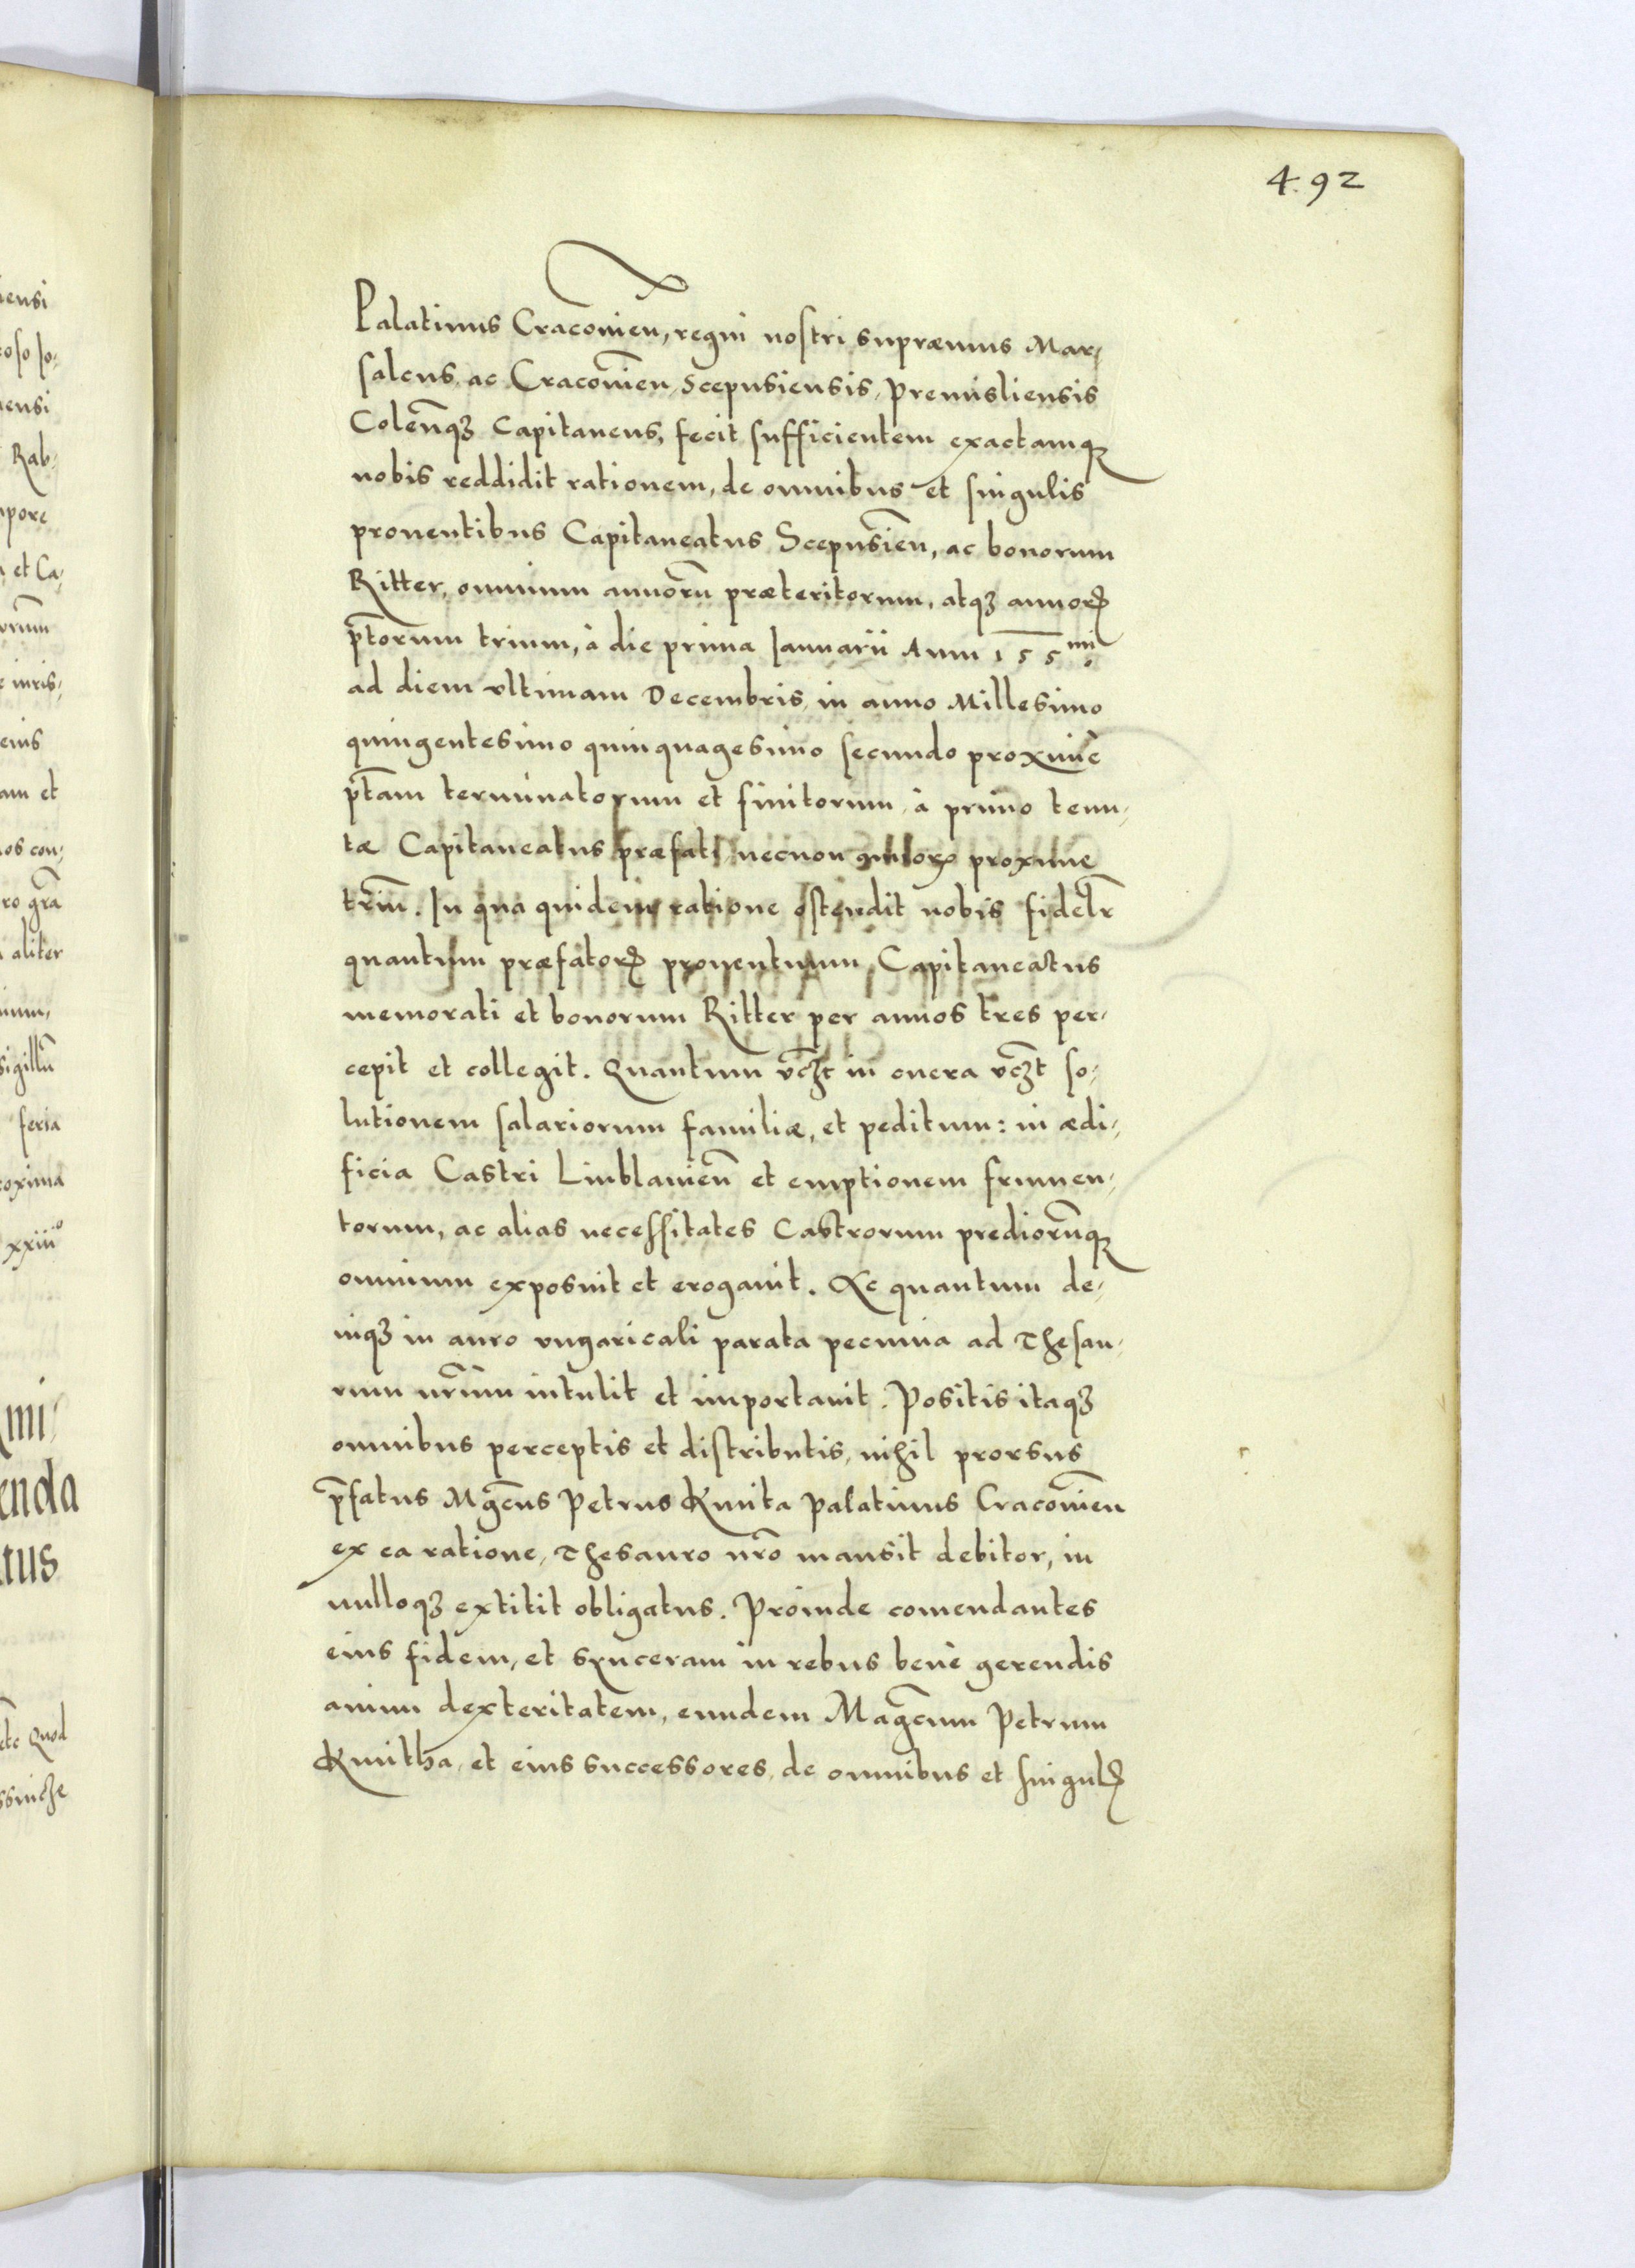 4.92
Palatinus Cracovien, regni nostri supræmus Mar,
salcus, ac Cracovien̄, Scepusiensis, Premisliensis
Colen̄qȝ Capitaneus, fecit sufficientem exactamqꝫ
nobis reddidit rationem, de omnibus et singulis
prouentibus Capitaneatus Scepusien̄, ac bonorum
Ritter, omnium annorū præteritorum, atqȝ annoꝝ
p̄torum trium, à die prima Ianuarii Anni 155
ad diem vltimam Decembris, in anno Millesimo
quingentesimo quinquagesimo secundo proximè
p̄tam terminatorum et finitorum, à primo tenu,
tæ Capitaneatus præfati, necnon proxime
triū. In qua quidem ratione ostendit nobis fidelr̄
quantum præfatoꝝ prouentuum, Capitaneatus
memorati et bonorum Ritter per annos tres per,
cepit et collegit. Quantum vc̄ȝt in onera vc̄ȝt so,
lutionem salariorum familiæ, et peditum: in ædi,
ficia Castri Liublauien̄ et emptionem frumen,
torum, ac alias necessitates Castrorum prediorūqꝫ
omnium exposuit et erogauit. Ac quantum de,
niqȝ in auro vngaricali parata pecunia ad Thesau,
rum nr̄um intulit et importauit. Positis itaqȝ
omnibus perceptis et distributis, nihil prorsus
p̄fatus Mgc̄us Petrus Kmita Palatinus Cracouien̄
ex ea ratione, Thesauro nr̄o mansit debitor, in
nulloqȝ extitit obligatus. Proinde comendantes
eius fidem, et synceram in rebus benè gerendis
animi dexteritatem, eundem Magc̄um Petrum
Kmitha, et eius successores, de omnibus et singulꝭ